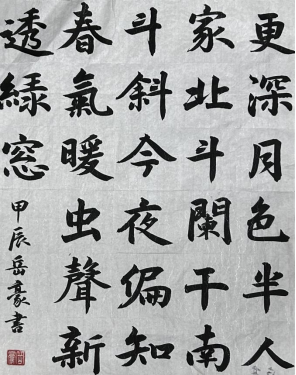 更深月色半人
家北斗闌干南
斗斜今夜偏知
春氣暖虫聲新
透綠窓
甲辰岳豪書